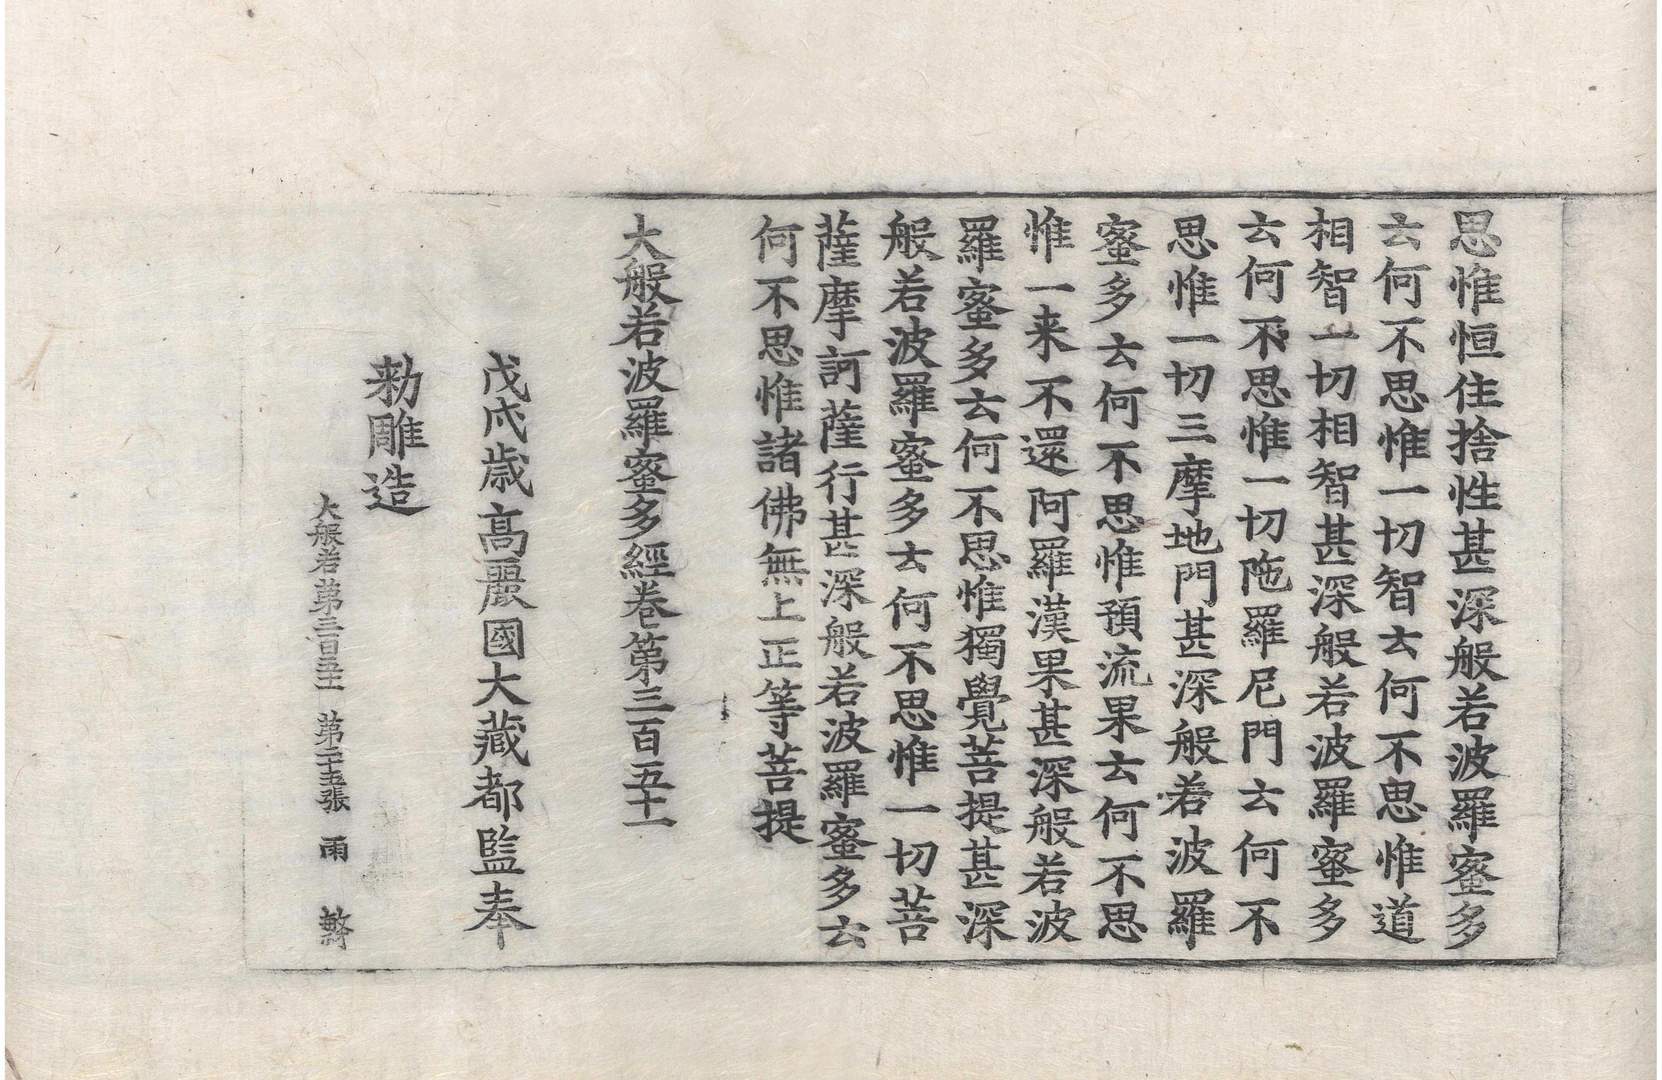 思惟恒住捨性甚深般若波羅蜜多
云何不思惟一切智云何不思惟道
相智一切相智甚深般若波羅蜜多
云何不思惟一切陁羅尼門云何不
思惟一切三摩地門甚深般若波羅
蜜多云何不思惟預流果云何不思
惟一来不還阿羅漢果甚深般若波
羅蜜多云何不思惟獨覺菩提甚深
般若波羅蜜多云何不思惟一切菩
薩摩訶薩行甚深般若波羅蜜多云
何不思惟諸佛無上正等菩提
大般若波羅蜜多經卷第三百五十一
戊戌歲髙麗國大藏都監奉
勑雕造
大般若第三百五十一 第二十五張 雨